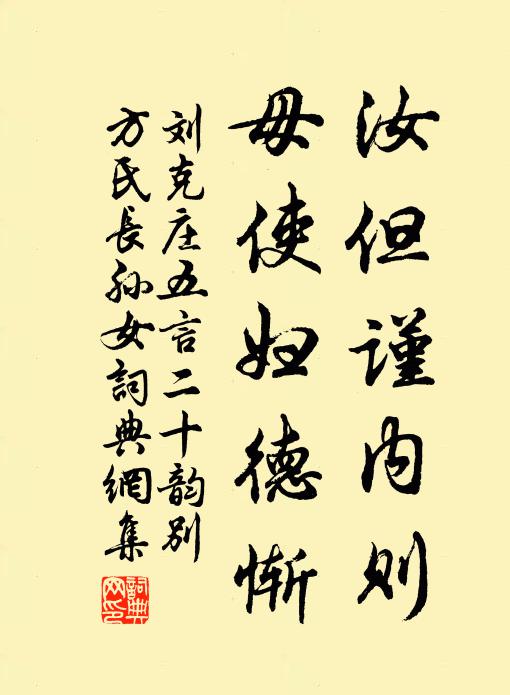 汝但謹内则
毋使妇德惭
刘克庄五言二十韵别
方氏長孙女詞典網集
詞典網印